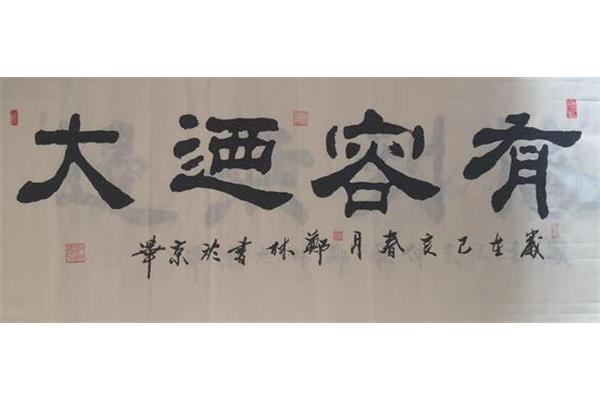 有容迺大
歲在己亥春月鄭林書於京華